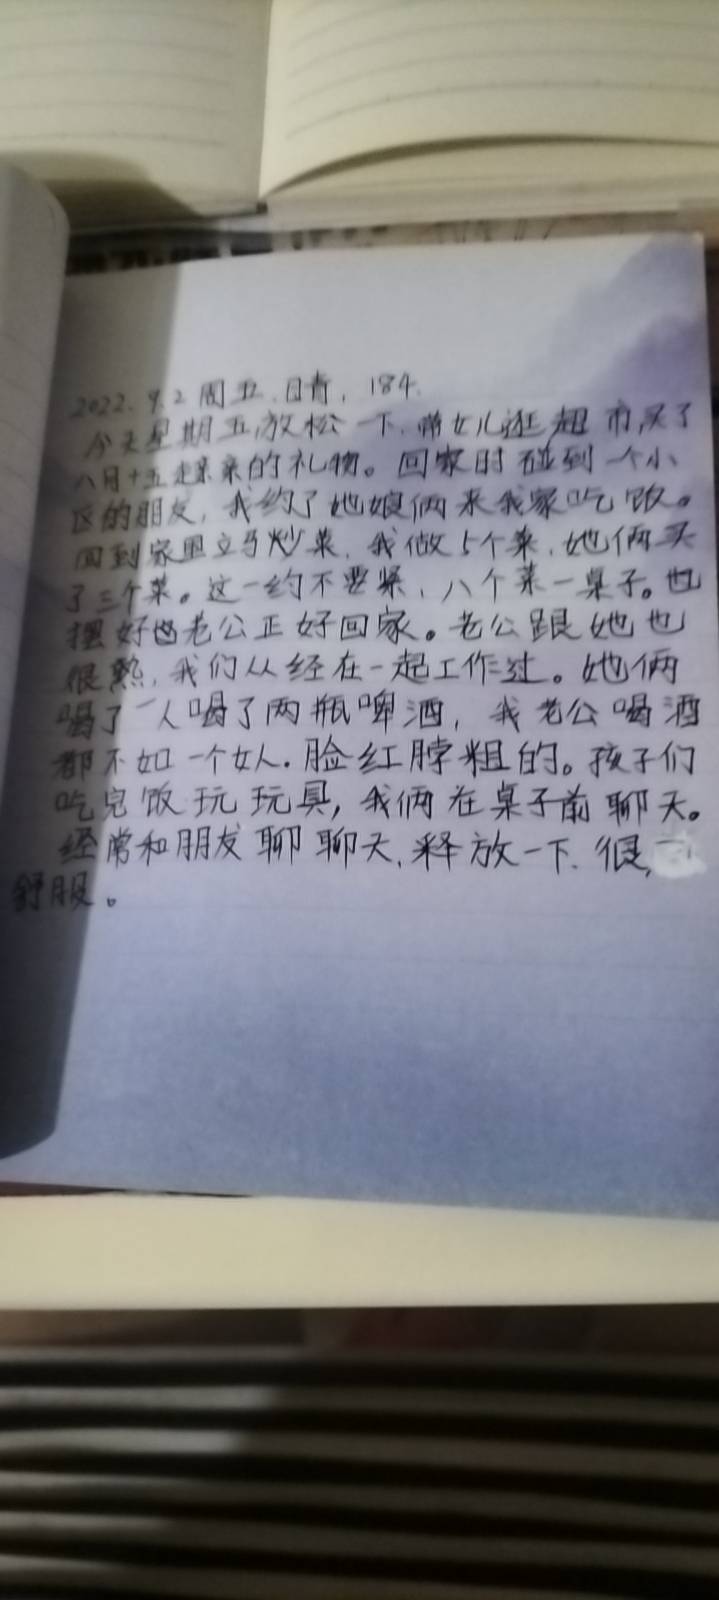 2022.9.2 周五.晴. 184.
今天星期五放松一下.带女儿逛超市,买了
八月十五走亲亲的礼物。回家时碰到一个小
区的朋友,我约了她娘俩来我家吃饭。
回到家里立马炒菜,我做5个菜,她俩买
了三个菜。这一约不要紧,八个菜一桌子。也
摆好也老公正好回家。老公跟她也
很熟,我们从经在一起工作过。她俩
喝了一人喝了两瓶啤酒,我老公喝酒
都不如一个女人.脸红脖粗的。孩子们
吃完饭玩玩具,我俩在桌子前聊天。
经常和朋友聊聊天,释放一下.很
舒服。